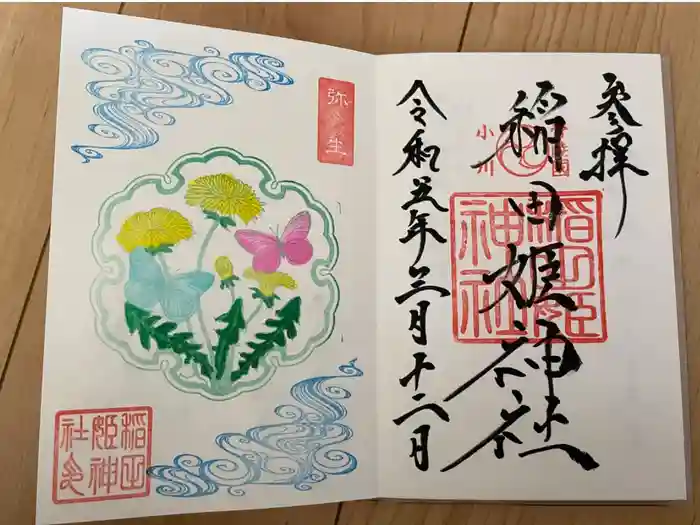 参拝
稲田姫神社
令和五年三月十二日
稲田姫神社
小川
弥生
稲田姫神社印